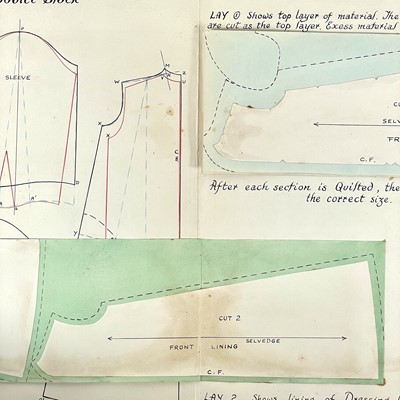 LAY ① Shows top layer of material. The
are cut as the top layer. Exess material
SLEEVE
M
Z
W
U
X
X
C.B
D
A'
Y
CU
SELV
FR
C.F.
After each section is Quilted, the
the correct size.
CUT 2
SELVEDGE
FRONT LINING
C.F.
LAY 2 Shows lining of Dressing